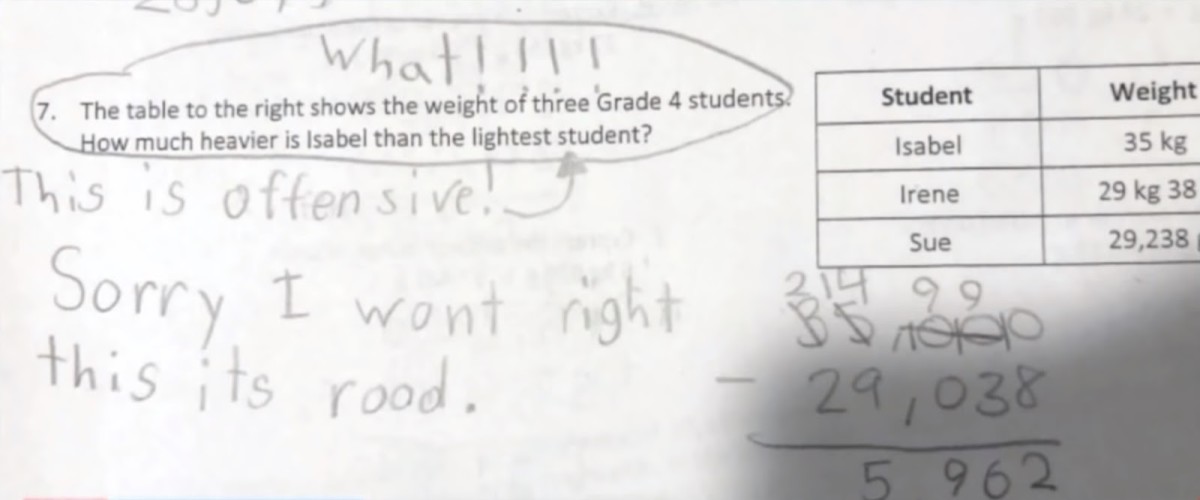 What!!!!
7. The table to the right shows the weight of three Grade 4 students.
How much heavier is Isabel than the lightest student?
This is offensive!
Sorry I wont right
this its rood.
Student Weight
Isabel 35 kg
Irene 29 kg 38
Sue 29,238
3 14 9 9
35,000
- 29,038
5 962